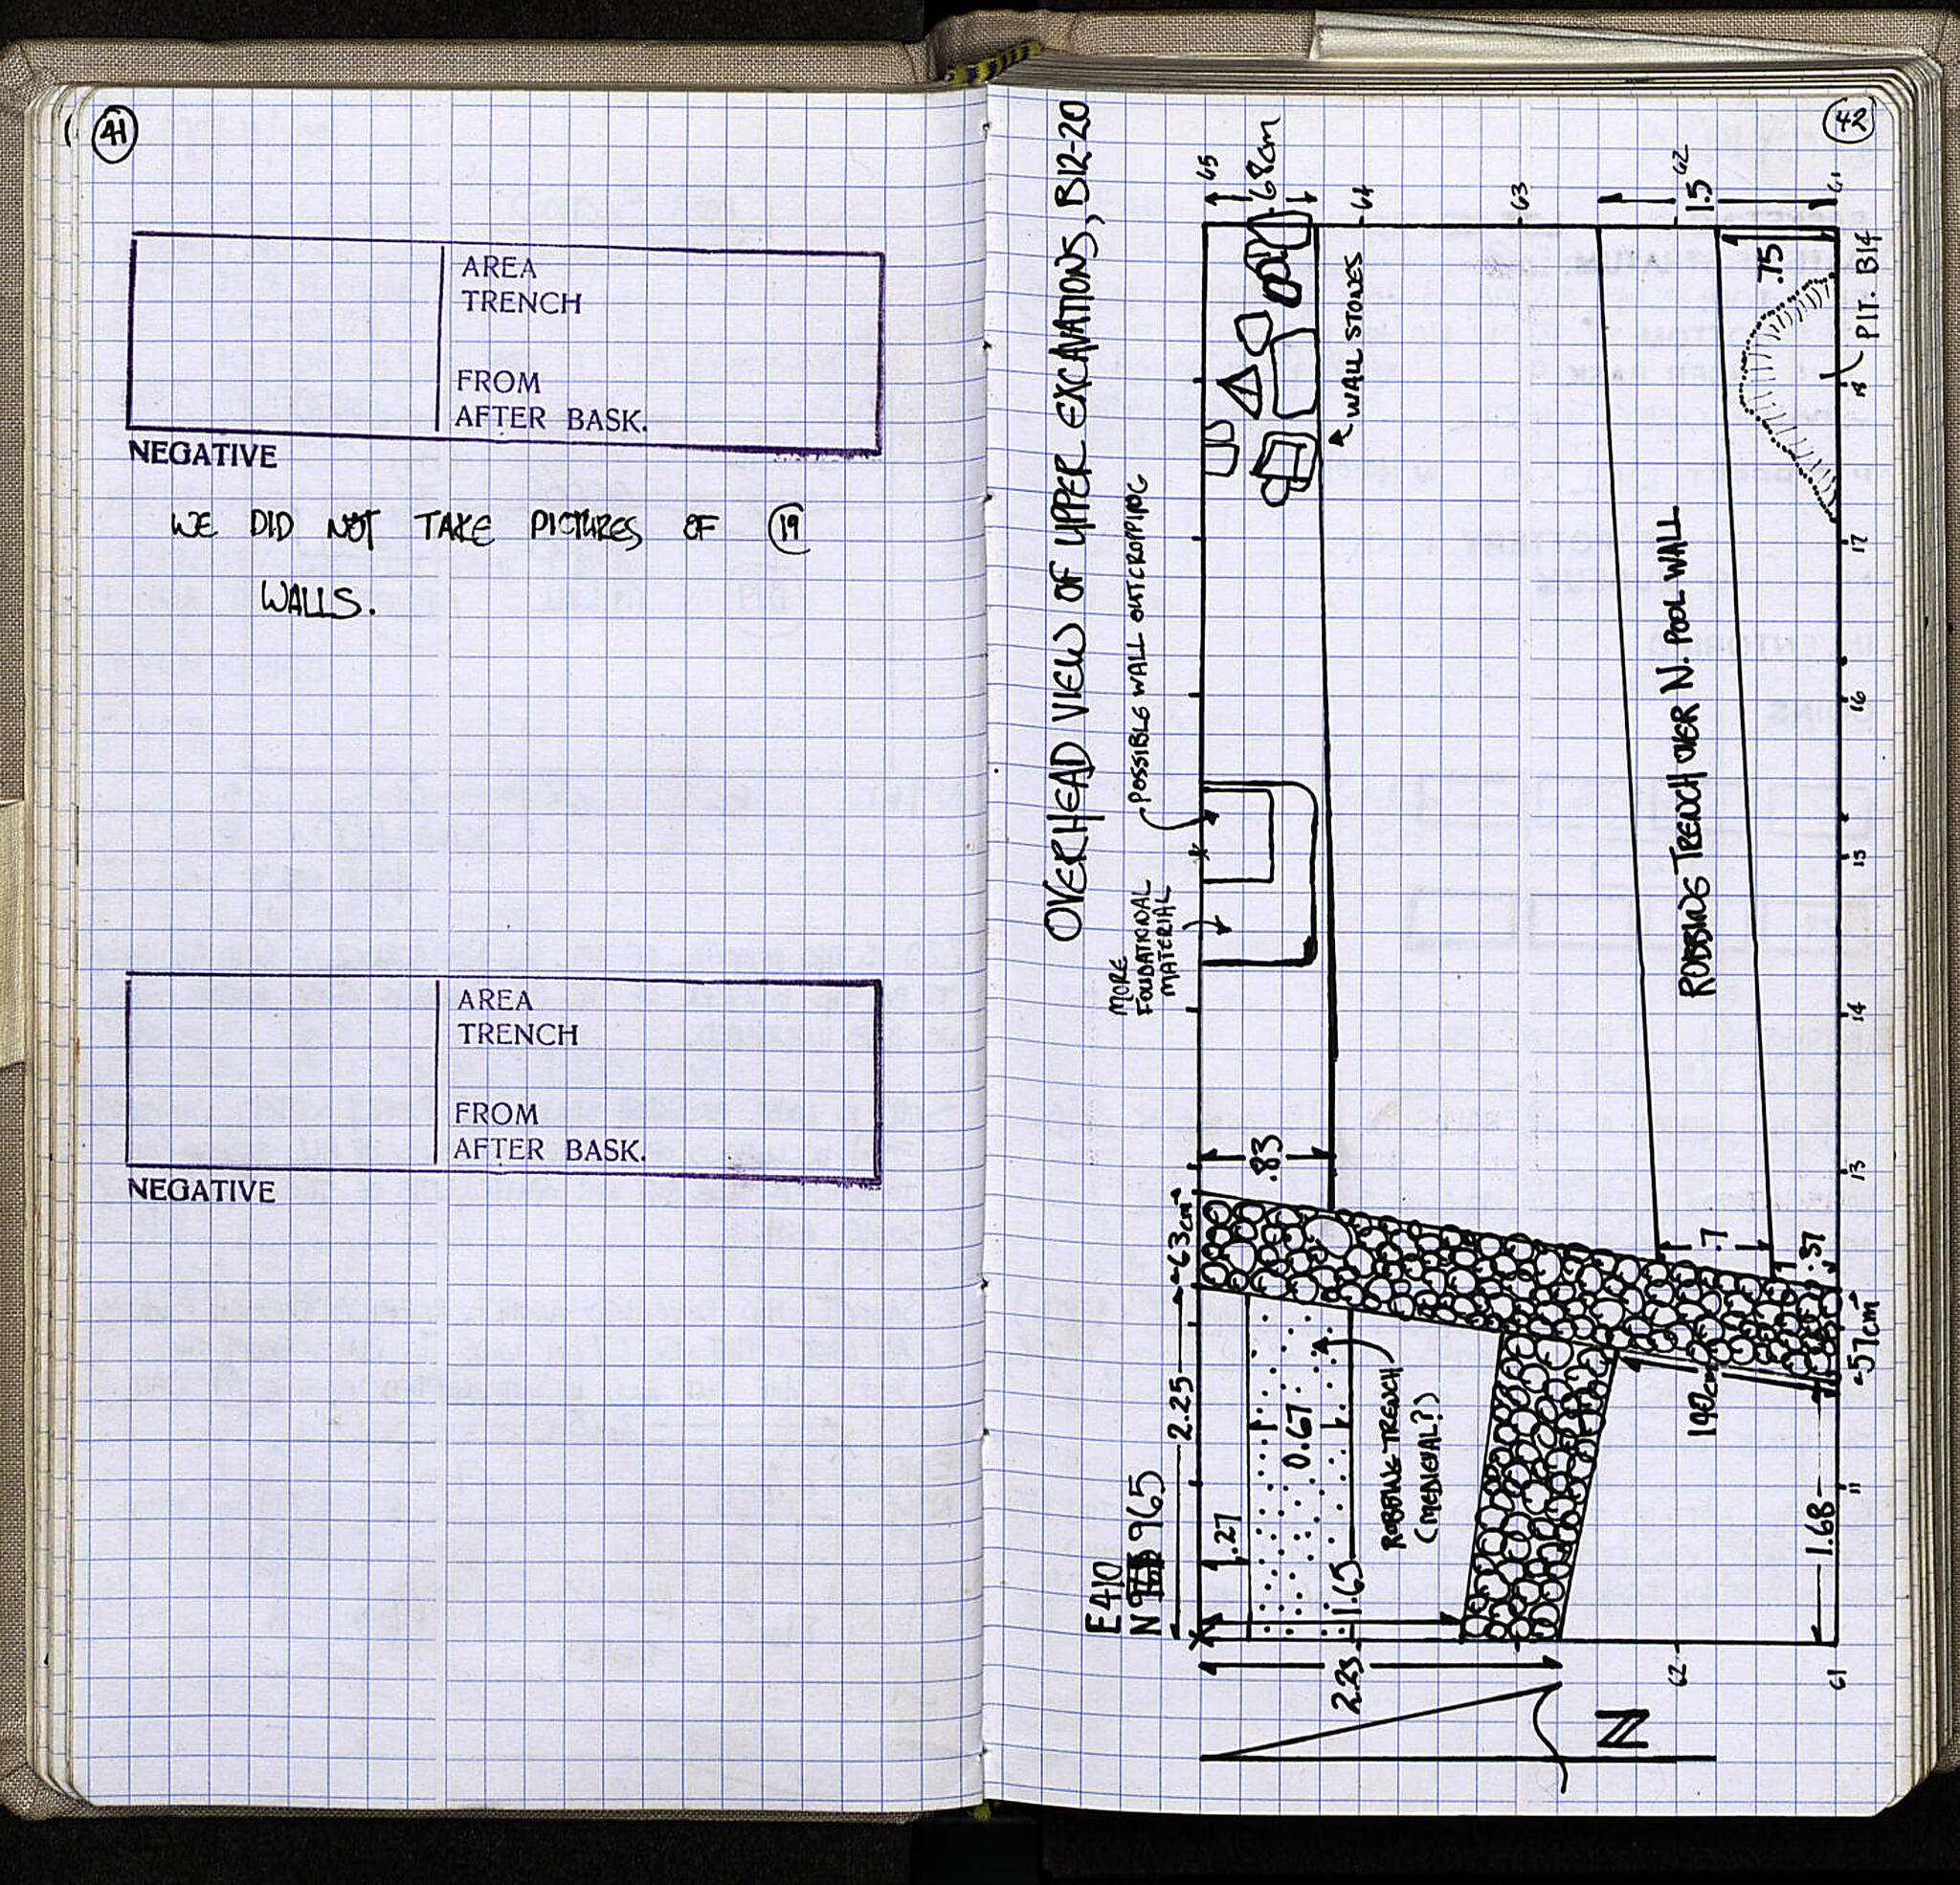 41
AREA
TRENCH
FROM
AFTER BASK.
NEGATIVE
WE DID NOT TAKE PICTURES OF 19
WALLS.
AREA
TRENCH
FROM
AFTER BASK.
NEGATIVE
42
OVERHEAD VIEW OF UPPER EXCAVATIONS, B12-20
E 410
N 965
2.25
63cm
MORE
FOUNDATIONAL
MATERIAL
POSSIBLE WALL OUTCROPPING
65
68cm
64
63
62
1.5
61
WALL STONES
.83
.27
0.67
1.65
2.23
ROBBING TRENCH
(MEDIEVAL?)
ROBBING TRENCH OVER N. POOL WALL
.7
.37
.75
PIT. B14
190cm
1.68
57cm
11
13
14
15
16
17
18
62
61
N